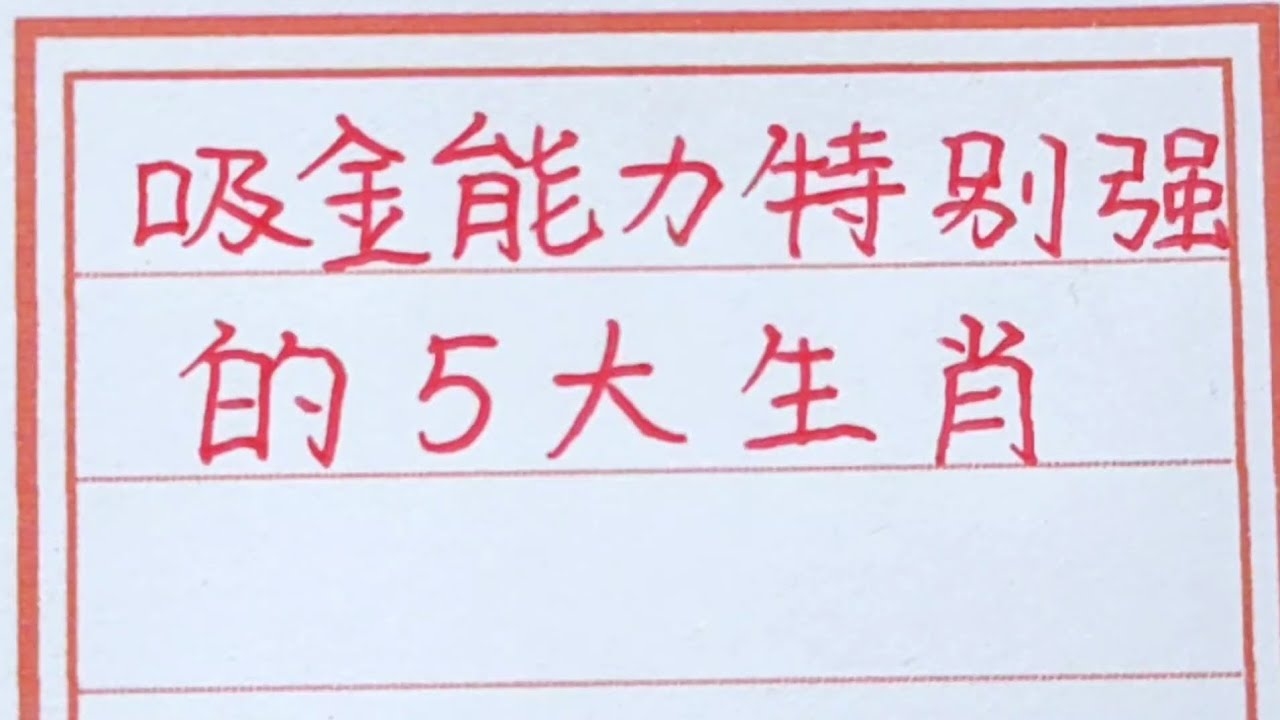 吸金能力特别强
的5大生肖